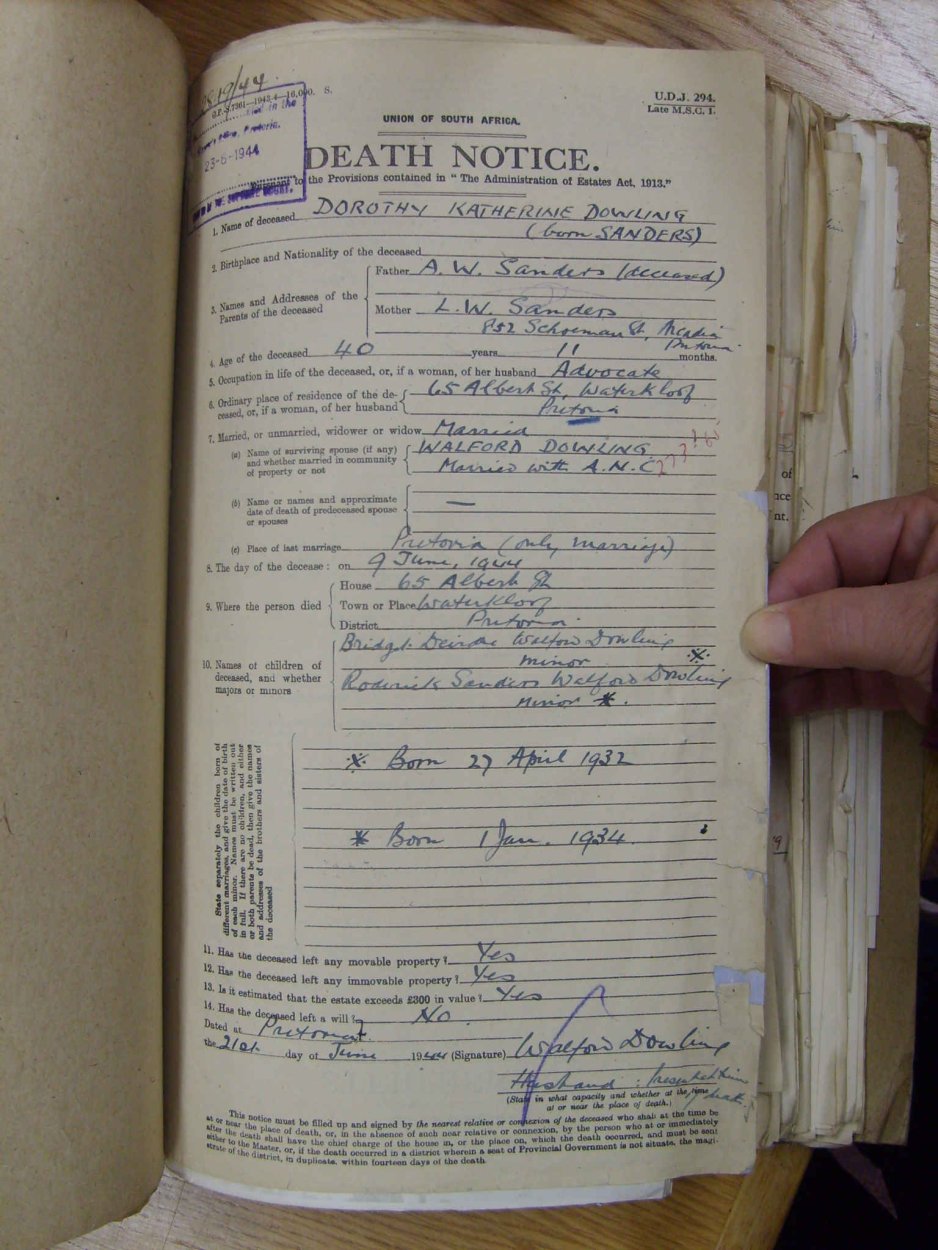 19/44
G.P.-S.7361—1943-4—16,000. S.
U.D.J. 294.
Late M.S.C. 1.
in the
Pretoria.
23-6-1944
UNION OF SOUTH AFRICA.
DEATH NOTICE.
Pursuant to the Provisions contained in “ The Administration of Estates Act, 1913.”
1. Name of deceased DOROTHY KATHERINE DOWLING
(born SANDERS)
2. Birthplace and Nationality of the deceased
3. Names and Addresses of the Parents of the deceased
Father A. W. Sanders (deceased)
Mother L. W. Sanders
852 Schoeman St, Arcadia
Pretoria
4. Age of the deceased 40 years 11 months.
5. Occupation in life of the deceased, or, if a woman, of her husband Advocate
6. Ordinary place of residence of the de-
ceased, or, if a woman, of her husband
65 Albert St, Waterkloof
Pretoria
7. Married, or unmarried, widower or widow Married
(a) Name of surviving spouse (if any)
and whether married in community
of property or not
WALFORD DOWLING
Married with A.N.C.
(b) Name or names and approximate
date of death of predeceased spouse
or spouses
—
(c) Place of last marriage Pretoria (only marriage)
8. The day of the decease : on 9 June, 1944
9. Where the person died
House 65 Albert St
Town or Place Waterkloof
District Pretoria.
10. Names of children of
deceased, and whether
majors or minors
Bridget Deirdre Walford Dowling
minor ※
Roderick Sanders Walford Dowling
minor *.
State separately the children born of
different marriages, and give the date of birth
of each minor. Names must be written out
in full. If there are no children, and either
or both parents be dead, then give the names
and addresses of the brothers and sisters of
the deceased
※ Born 27 April 1932
* Born 1 Jan. 1934.
11. Has the deceased left any movable property ? Yes
12. Has the deceased left any immovable property ? Yes
13. Is it estimated that the estate exceeds £300 in value ? Yes
14. Has the deceased left a will ? No.
Dated at Pretoria
the 21st day of June 1944 (Signature) Walford Dowling
Husband : Present at time
of death.
(State in what capacity and whether at the time
at or near the place of death.)
This notice must be filled up and signed by the nearest relative or connexion of the deceased who shall at the time be
at or near the place of death, or, in the absence of such near relative or connexion, by the person who at or immediately
after the death shall have the chief charge of the house in, or the place on, which the death occurred, and must be sent
either to the Master, or, if the death occurred in a district wherein a seat of Provincial Government is not situate, the magi-
strate of the district, in duplicate, within fourteen days of the death
of
nce
nt.